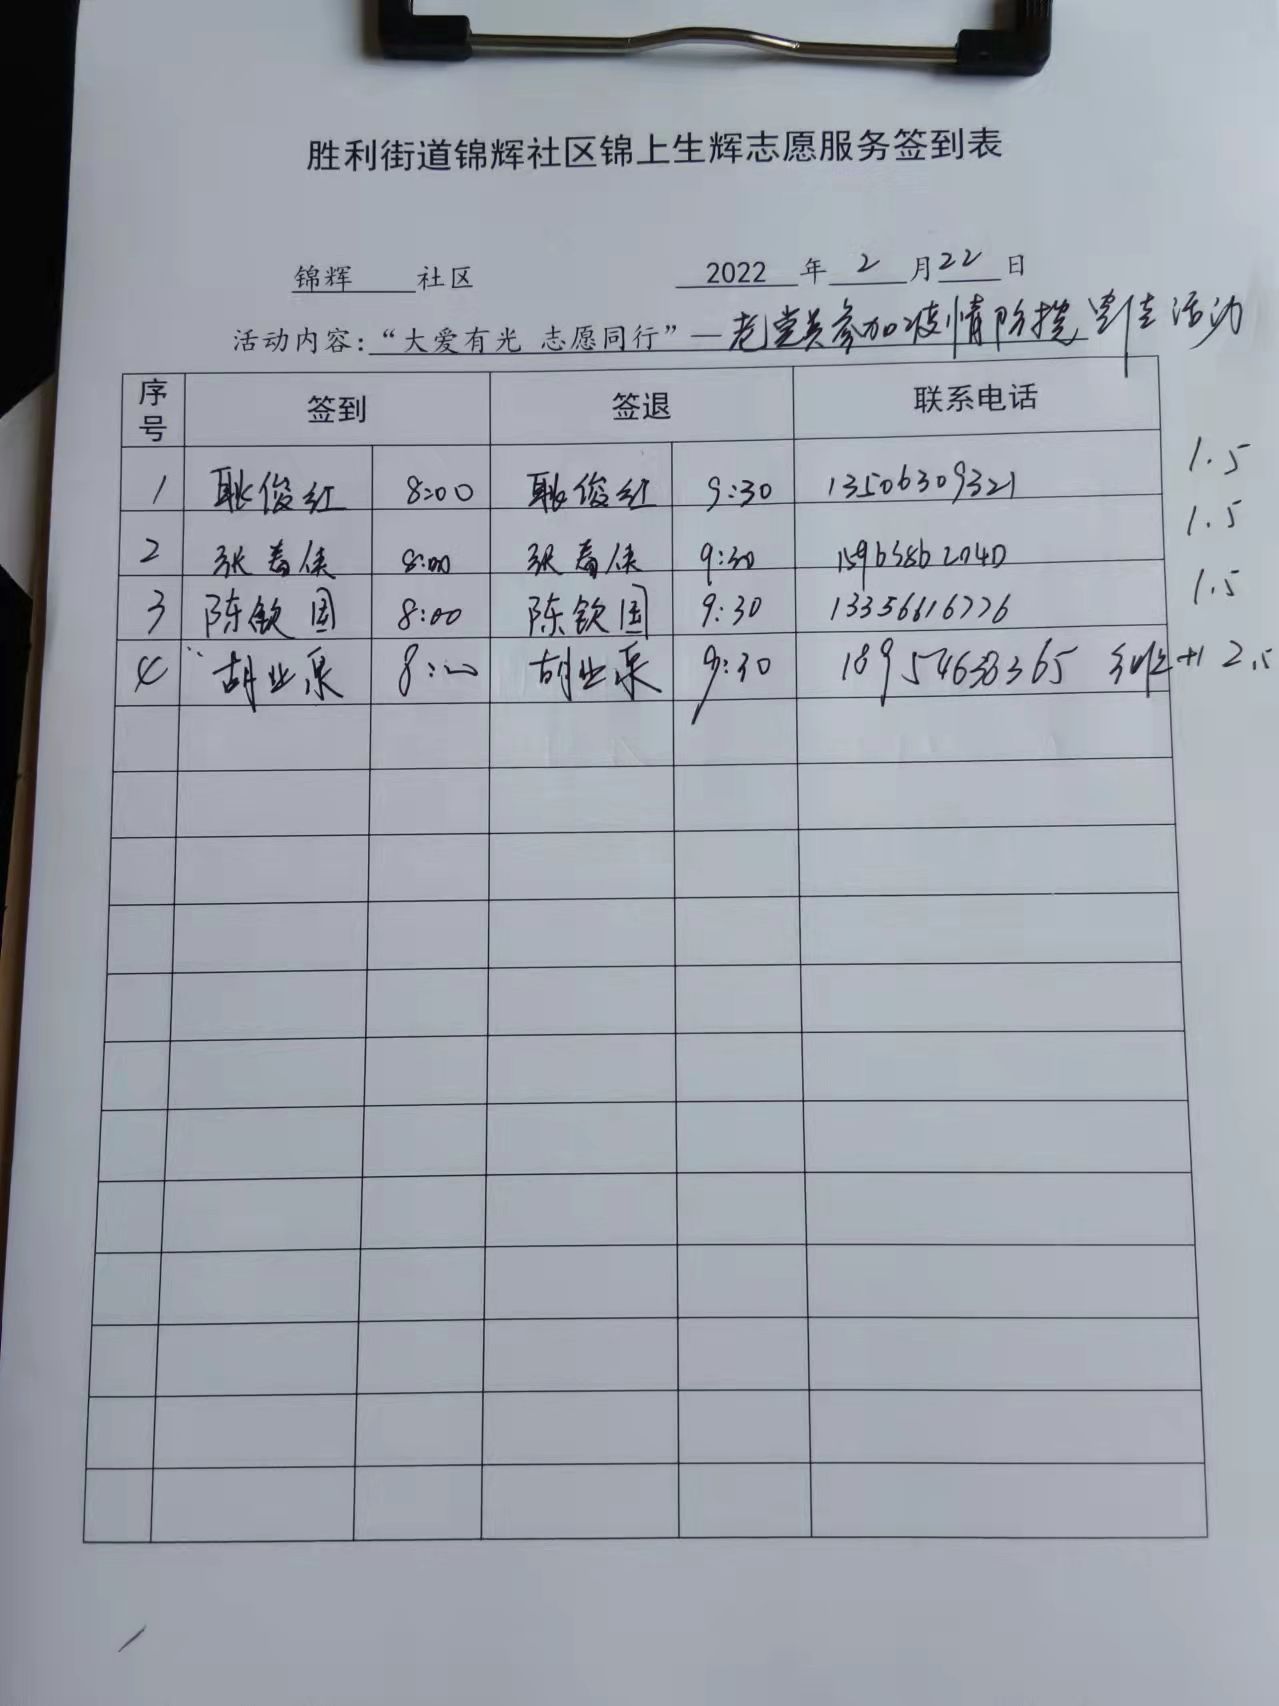 胜利街道锦辉社区锦上生辉志愿服务签到表
锦辉 社区 2022 年 2 月 22 日
活动内容:“大爱有光 志愿同行”—老党员参加疫情防控宣传活动
序号 签到 签退 联系电话
1 耿俊红 8:00 耿俊红 9:30 13506309321 1.5
2 张春侠 8:00 张春侠 9:30 15963862040 1.5
3 陈钦国 8:00 陈钦国 9:30 13356616776 1.5
4 胡业泉 8:00 胡业泉 9:30 18954638365 +1 2.5